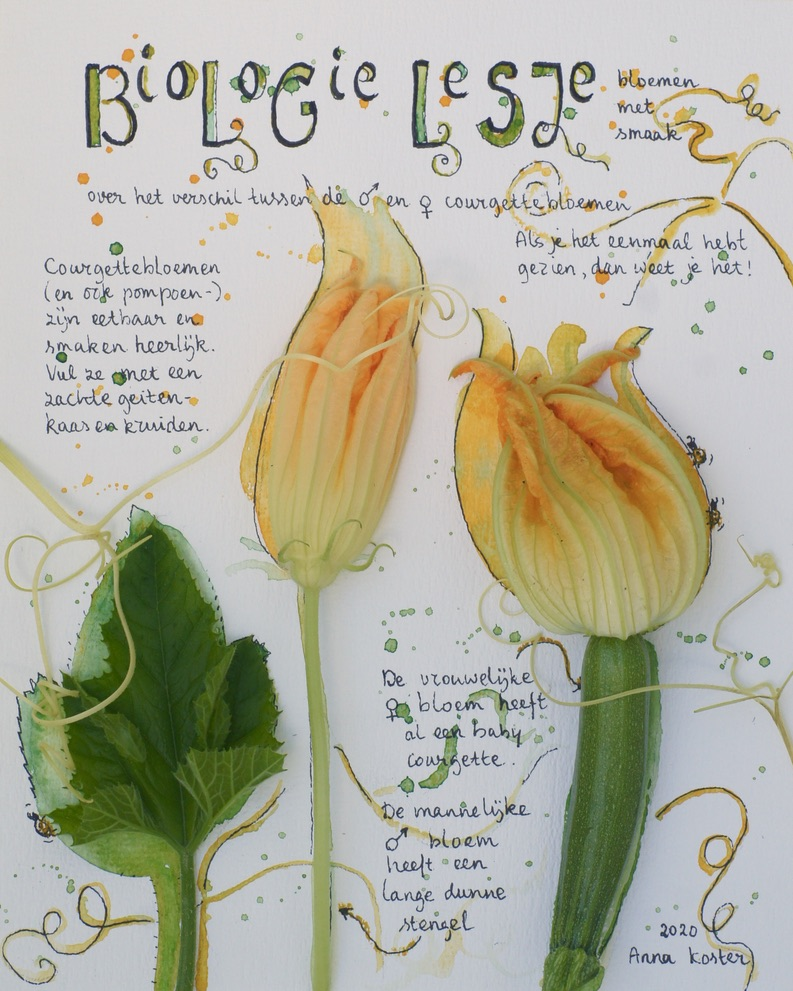 BioLoGie LesJe
bloemen
met
smaak
over het verschil tussen de ♂ en ♀ courgettebloemen
Als je het eenmaal hebt
gezien, dan weet je het!
Courgettebloemen
(en ook pompoen-)
zijn eetbaar en
smaken heerlijk.
Vul ze met een
zachte geiten-
kaas en kruiden.
De vrouwelijke
♀ bloem heeft
al een baby
courgette..
De mannelijke
♂ bloem
heeft een
lange dunne
stengel
2020
Anna Koster